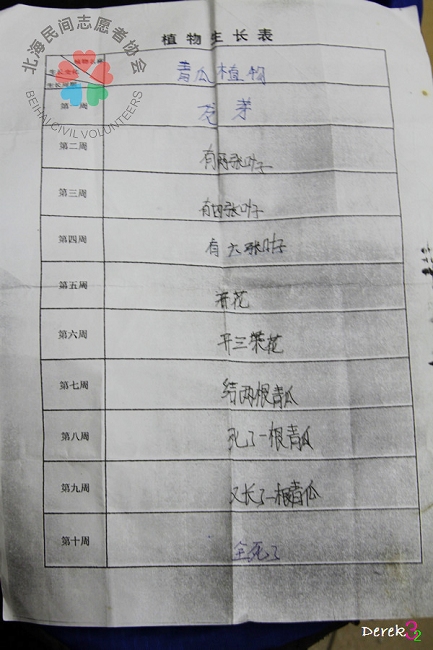 北海民间志愿者协会
BEIHAI CIVIL VOLUNTEERS
植物生长表
植物名称
生长变化
生长周期
青瓜植物
第一周 发芽
第二周 有两张叶子
第三周 有四张叶子
第四周 有六张叶子
第五周 开花
第六周 开三朵花
第七周 结两根青瓜
第八周 死了一根青瓜
第九周 又长了一根青瓜
第十周 全死了
Derek32